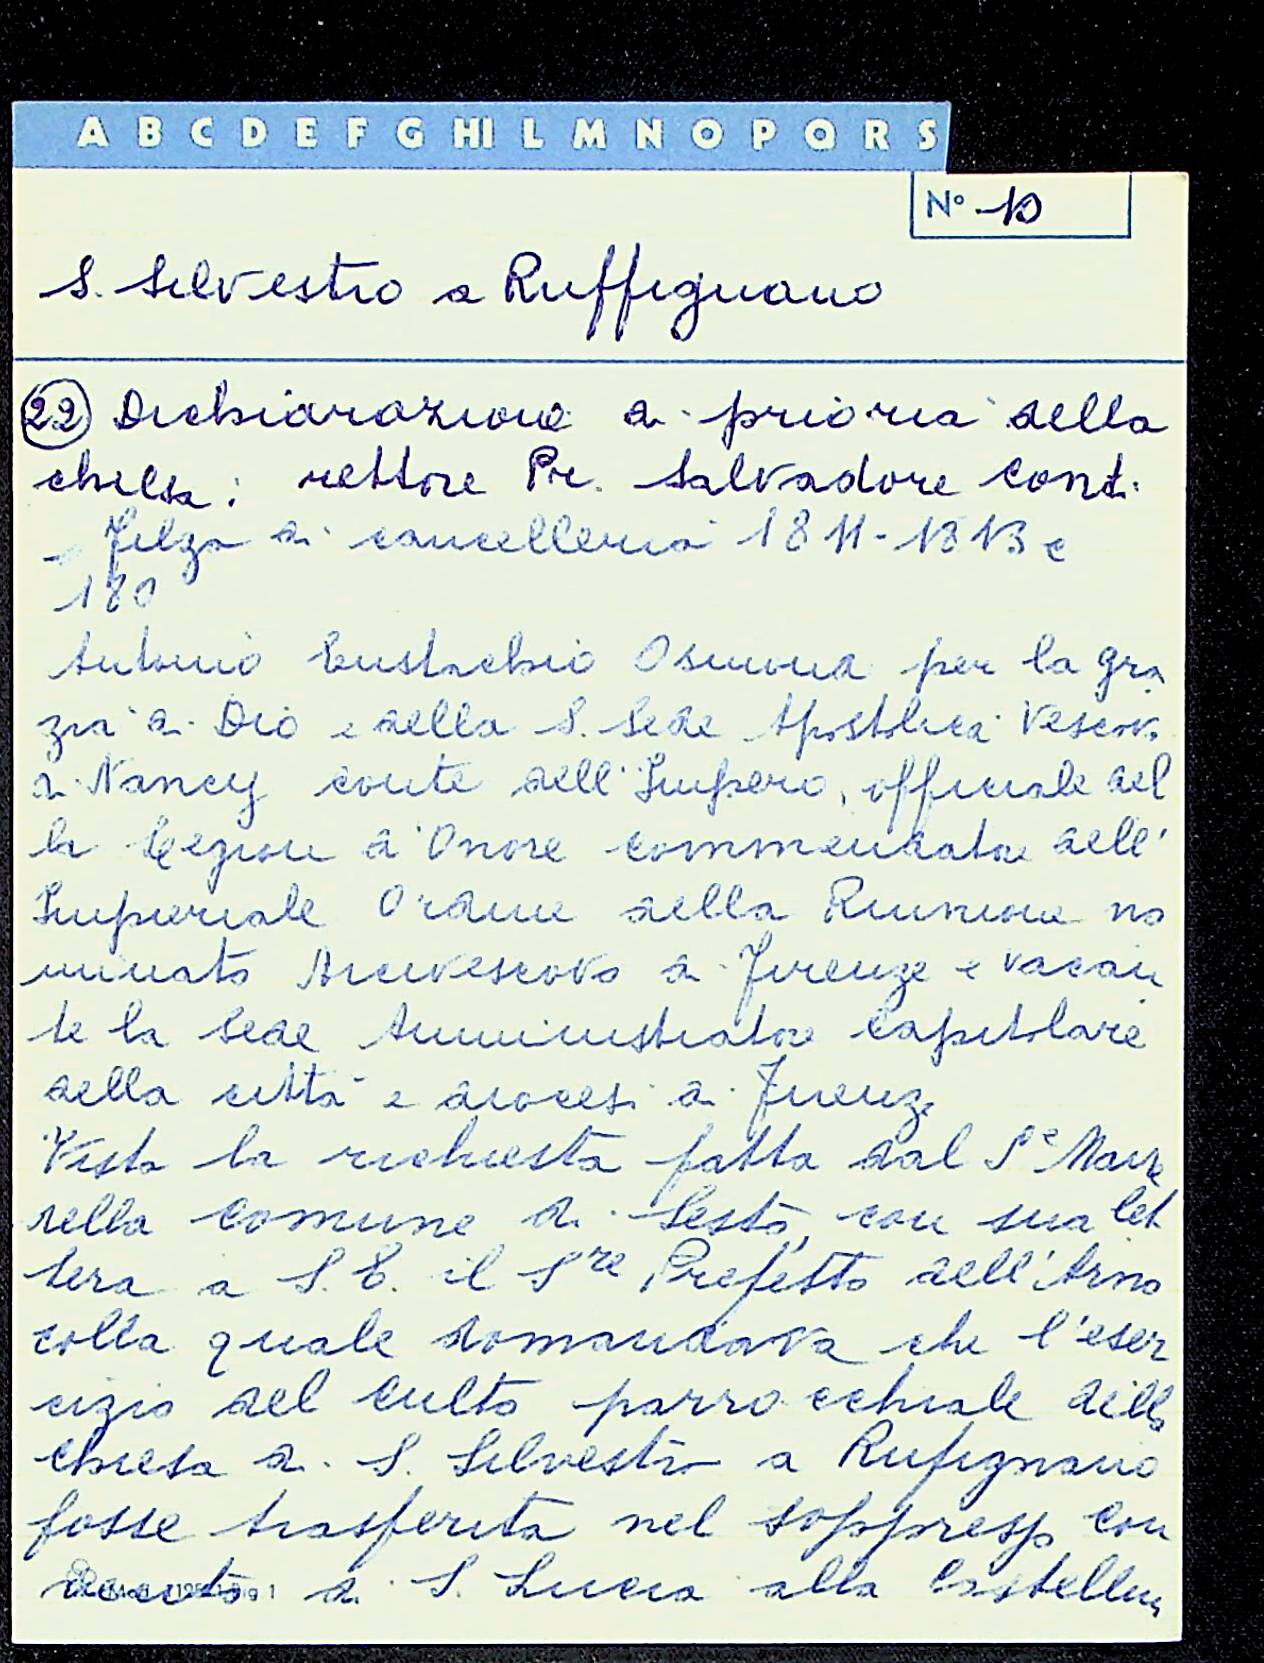 A B C D E F G HI L M N O P Q R S
N° 10
S. Silvestro a Ruffignano
22 Dichiarazione di prioria della
chiesa: rettore Pr. Salvadore Conti
- Filza di cancelleria 1811-1813 c
180
Antonio Eustachio Osmond per la gra
zia di Dio e della S. Sede Apostolica Vescovo
di Nancy conte dell'Impero, officiale del
la Legion d'Onore commendatore dell'
Imperiale Ordine della Riunione no
minato Arcivescovo di Firenze e vacan
te la Sede Amministratore Capitolare
della città e diocesi di Firenze
Vista la richiesta fatta dal Sr Maire
della Comune di Sesto, con sua let
tera a S. E. il Sre Prefetto dell'Arno
colla quale domandava che l'eser
cizio del culto parrocchiale della
chiesa di S. Silvestro a Rufignano
fosse trasferita nel soppresso con
vento di S. Lucia alla Castellina